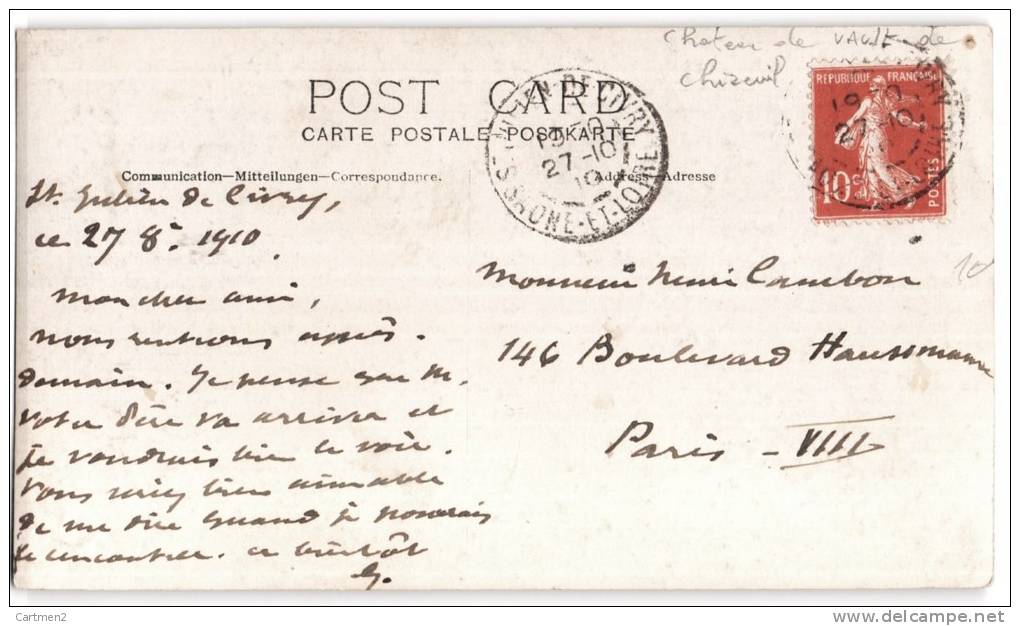 Chateau de VAUX de
Chizeuil
POST CARD
CARTE POSTALE-POSTKARTE
Communication—Mitteilungen—Correspondance.
Address—Adresse
ST JULIEN-DE-CIVRY
19 30
27-10
10
SAONE-ET-LOIRE
REPUBLIQUE FRANÇAISE
10c
POSTES
St. Julien de Civry,
ce 27 8e. 1910
Mon cher ami,
nous rentrons après.
demain. Je pense que M.
votre père va arriver et
je voudrais bien le voir.
Vous seriez bien aimable
de me dire quand je pourrais
le rencontrer. a bientôt
G.
Monsieur Henri Cambon
146 Boulevard Haussmann
Paris - VIII
10
Cartmen2
www.delcampe.net